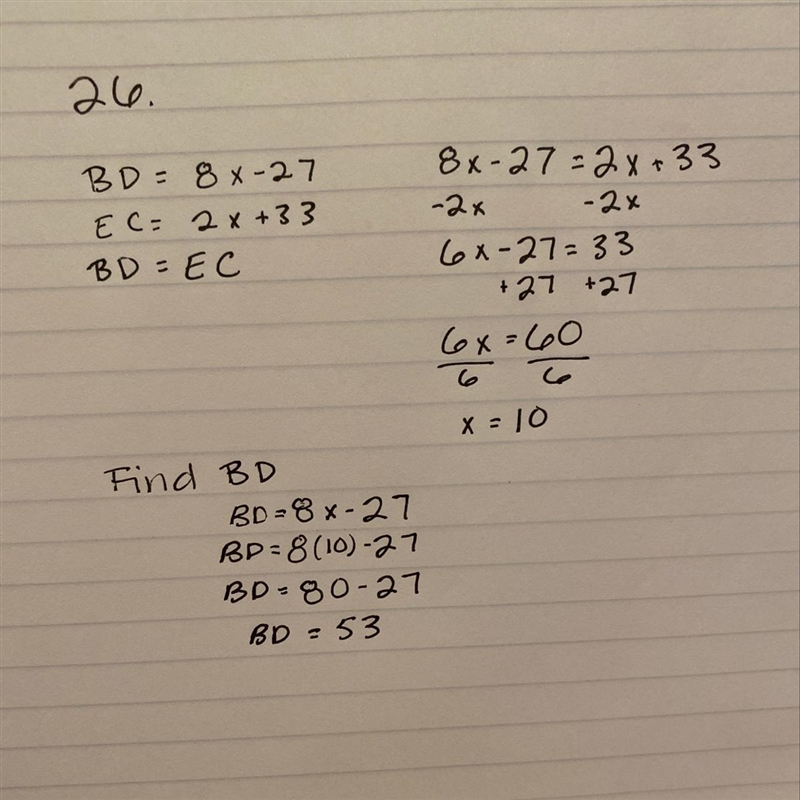 26.
BD = 8x-27
EC = 2x+33
BD = EC
8x-27 = 2x+33
-2x -2x
6x-27 = 33
+27 +27
6x = 60
6 6
x = 10
Find BD
BD = 8x-27
BD = 8(10)-27
BD = 80-27
BD = 53